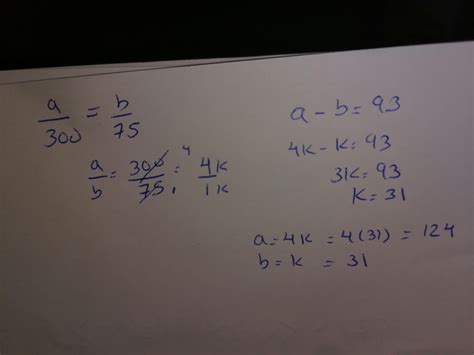 a/300 = b/75
a/b = 300/75 = 4k/1k
4
1
a - b = 93
4k - k = 93
3k = 93
k = 31
a = 4k = 4(31) = 124
b = k = 31